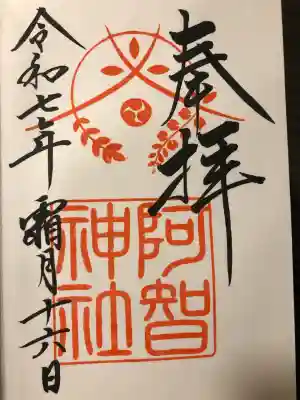 奉拝
阿智
神社
令和七年 霜月十六日